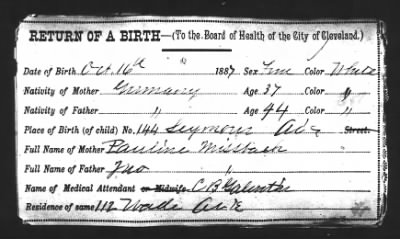 RETURN OF A BIRTH—(To the Board of Health of the City of Cleveland.)
Date of Birth Oct. 16th " 1887 Sex Fem Color White
Nativity of Mother Germany Age 37 Color "
Nativity of Father " Age 44 Color "
Place of Birth (of child) No. 144 Seymour Ave Street.
Full Name of Mother Pauline Missbach "
Full Name of Father Jno "
Name of Medical Attendant or Midwife C B
Residence of same 112 Wade Ave